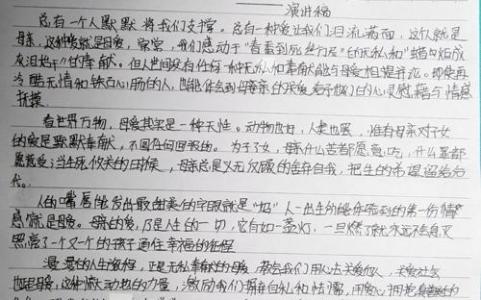 演讲稿
总有一个人默默将我们支撑。总有一种爱让我们泪流满面,这个人就是
母亲,这种爱就是母爱,常常,我们感动于"春蚕到死丝方尽"的无私和"蜡炬成
灰泪始干"的奉献。但人世间没有任何一种无私和奉献能与母爱相提并论。即使再
冷酷无情和铁石心肠的人,也能体会到母亲的 给予他们的心灵慰藉与情感
抚摸
看世界万物,母爱其实是一种天性。动物也好,人类也罢,唯有母亲对子女
的爱是默默奉献,不图任何回报的。为了子女,母亲什么苦都愿意吃,什么累都
愿意受;当生死攸关的时候,母亲总是义无反顾的舍弃自我,把生的希望留给后
代。
人的嘴唇能发出最甜美的字眼就是"妈"人一出生的 的第一份情
感就是母爱。母亲的爱,乃是人生的一切,它自如一盏灯,一旦燃了就永远不会熄灭
照亮了一个又一个的孩子通往幸福的征程
漫漫的人生旅程,正是无私奉献的母爱,教会我们用心去关爱他人,关爱社会
也是母爱,这种激动他的力量,激励我们摒弃自私和怯懦,用爱心拥抱